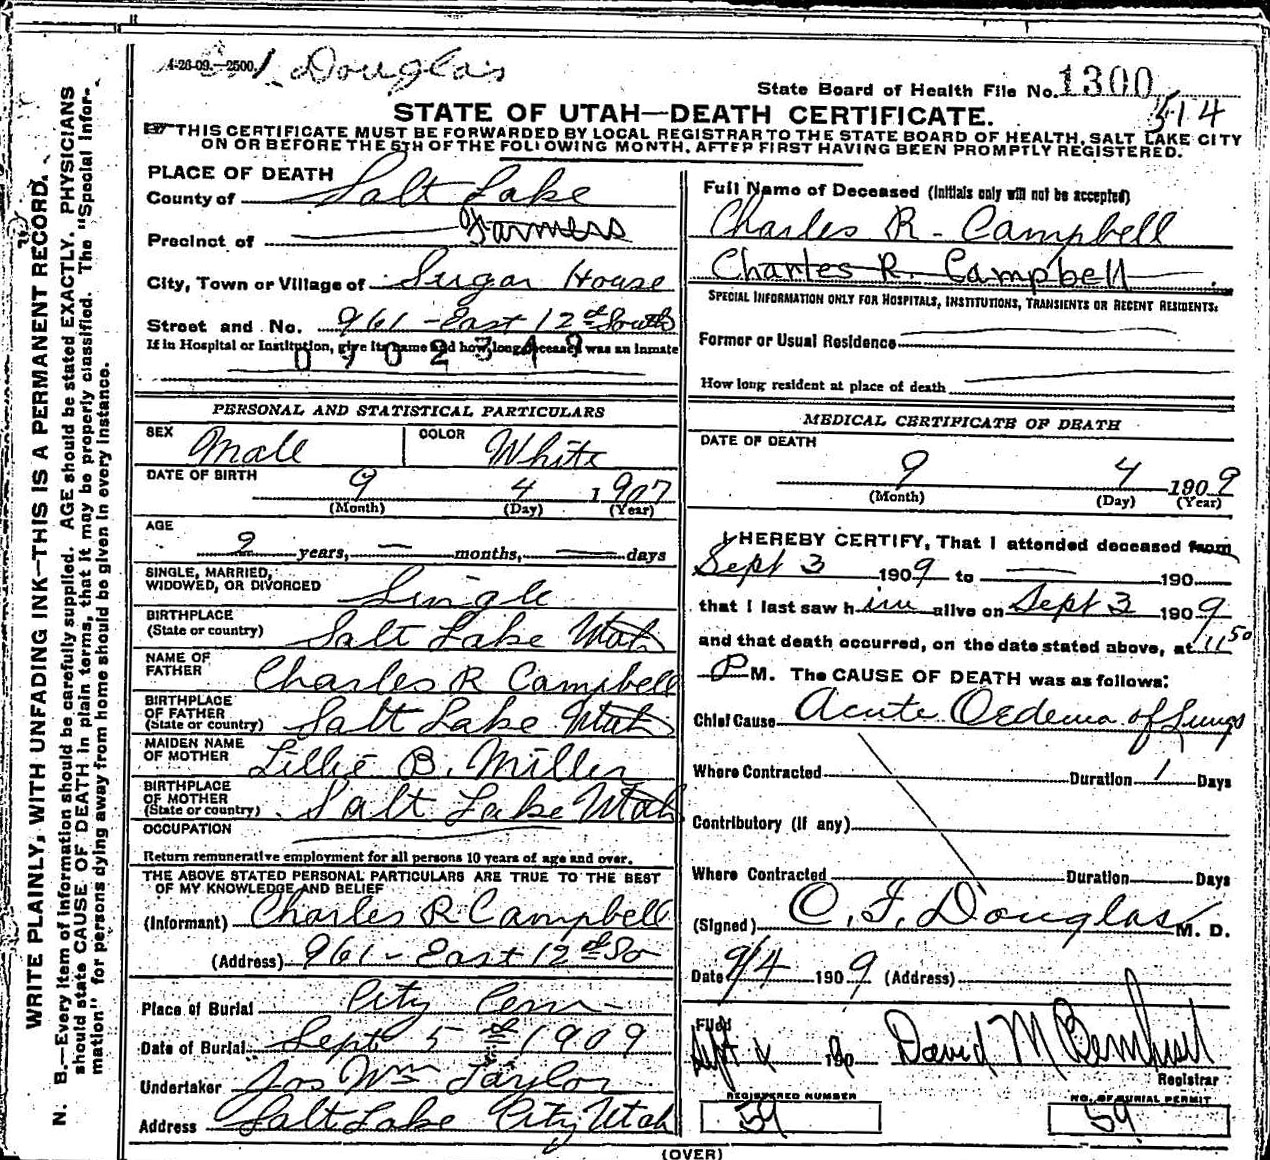 4-26-09.—2500.
Douglas
State Board of Health File No. 1300
514
STATE OF UTAH—DEATH CERTIFICATE.
THIS CERTIFICATE MUST BE FORWARDED BY LOCAL REGISTRAR TO THE STATE BOARD OF HEALTH, SALT LAKE CITY
ON OR BEFORE THE 5TH OF THE FOLLOWING MONTH, AFTER FIRST HAVING BEEN PROMPTLY REGISTERED.
WRITE PLAINLY, WITH UNFADING INK—THIS IS A PERMANENT RECORD.
N. B.—Every item of information should be carefully supplied. AGE should be stated EXACTLY. PHYSICIANS
should state CAUSE OF DEATH in plain terms, that it may be properly classified. The "Special Infor-
mation" for persons dying away from home should be given in every instance.
PLACE OF DEATH
County of Salt Lake
Precinct of Farmers
City, Town or Village of Sugar House
Street and No. 961 - East 12th South
If in Hospital or Institution, give its name and how long deceased was an inmate
0902349
PERSONAL AND STATISTICAL PARTICULARS
SEX Male COLOR White
DATE OF BIRTH 9 4 1907
(Month) (Day) (Year)
AGE
2 years, — months, — days
SINGLE, MARRIED,
WIDOWED, OR DIVORCED Single
BIRTHPLACE
(State or country) Salt Lake Utah
NAME OF
FATHER Charles R Campbell
BIRTHPLACE
OF FATHER
(State or country) Salt Lake Utah
MAIDEN NAME
OF MOTHER Lillie B. Miller
BIRTHPLACE
OF MOTHER
(State or country) Salt Lake Utah
OCCUPATION
Return remunerative employment for all persons 10 years of age and over.
THE ABOVE STATED PERSONAL PARTICULARS ARE TRUE TO THE BEST
OF MY KNOWLEDGE AND BELIEF
(Informant) Charles R Campbell
(Address) 961 - East 12th So
Place of Burial City Cem
Date of Burial Sept 5 1909
Undertaker Jos Wm Taylor
Address Salt Lake City Utah
Full Name of Deceased (Initials only will not be accepted)
Charles R. Campbell
Charles R. Campbell
SPECIAL INFORMATION ONLY FOR HOSPITALS, INSTITUTIONS, TRANSIENTS OR RECENT RESIDENTS:
Former or Usual Residence
How long resident at place of death
MEDICAL CERTIFICATE OF DEATH
DATE OF DEATH
9 4 1909
(Month) (Day) (Year)
I HEREBY CERTIFY, That I attended deceased from
Sept 3 1909 to — 190
that I last saw him alive on Sept 3 1909
and that death occurred, on the date stated above, at 11 50
P M. The CAUSE OF DEATH was as follows:
Chief Cause Acute Oedema of Lungs
Where Contracted Duration 1 Days
Contributory (if any)
Where Contracted Duration Days
(Signed) O. F. Douglas M. D.
Date 9/4 1909 (Address)
Filed
Sept 4 190 David M
Registrar
REGISTERED NUMBER NO. OF BURIAL PERMIT
59 59
(OVER)